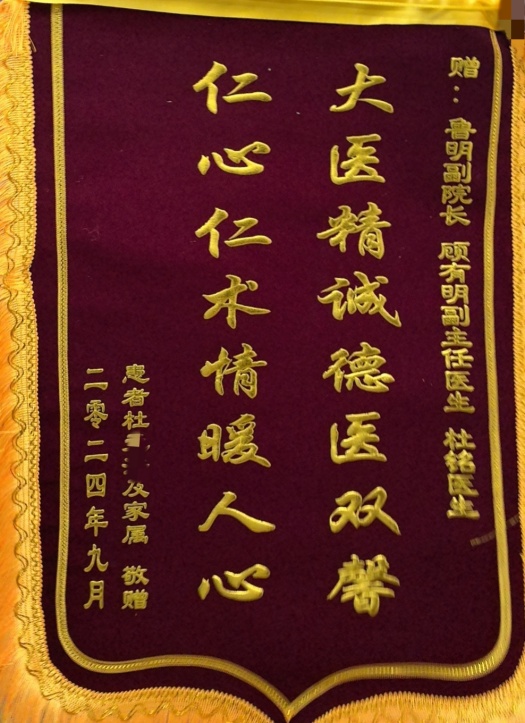 赠：鲁明副院长 顾有明副主任医生 杜铭医生
大医精诚德医双馨
仁心仁术情暖人心
患者杜 及家属 敬赠
二零二四年九月